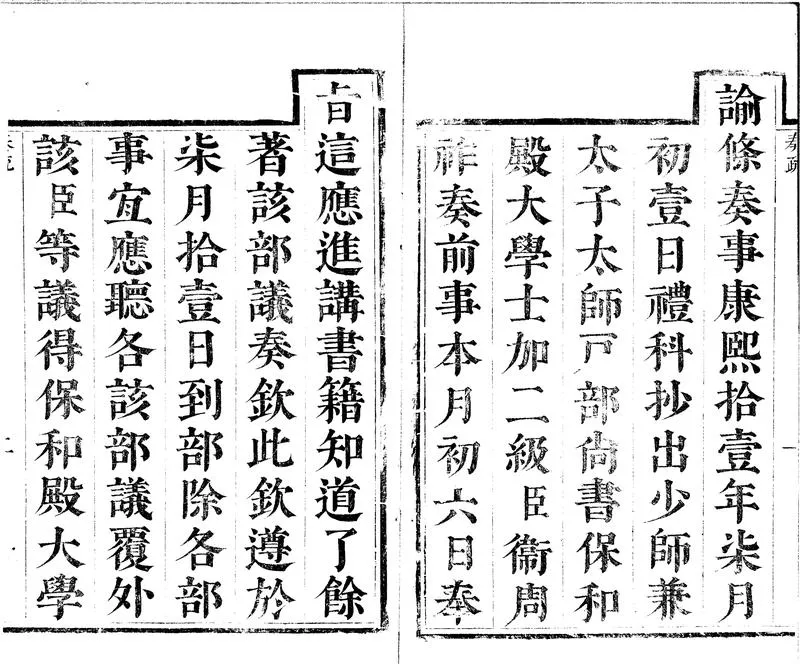 諭條奏事康熙拾壹年柒月
初壹日禮科抄出少師兼
太子太師戸部尚書保和
殿大學士加二級臣衞周
祚奏前事本月初六日奉
旨這應進講書籍知道了餘
著該部議奏欽此欽遵於
柒月拾壹日到部除各部
事宜應聽各該部議覆外
該臣等議得保和殿大學
奏疏
一
奏疏
二